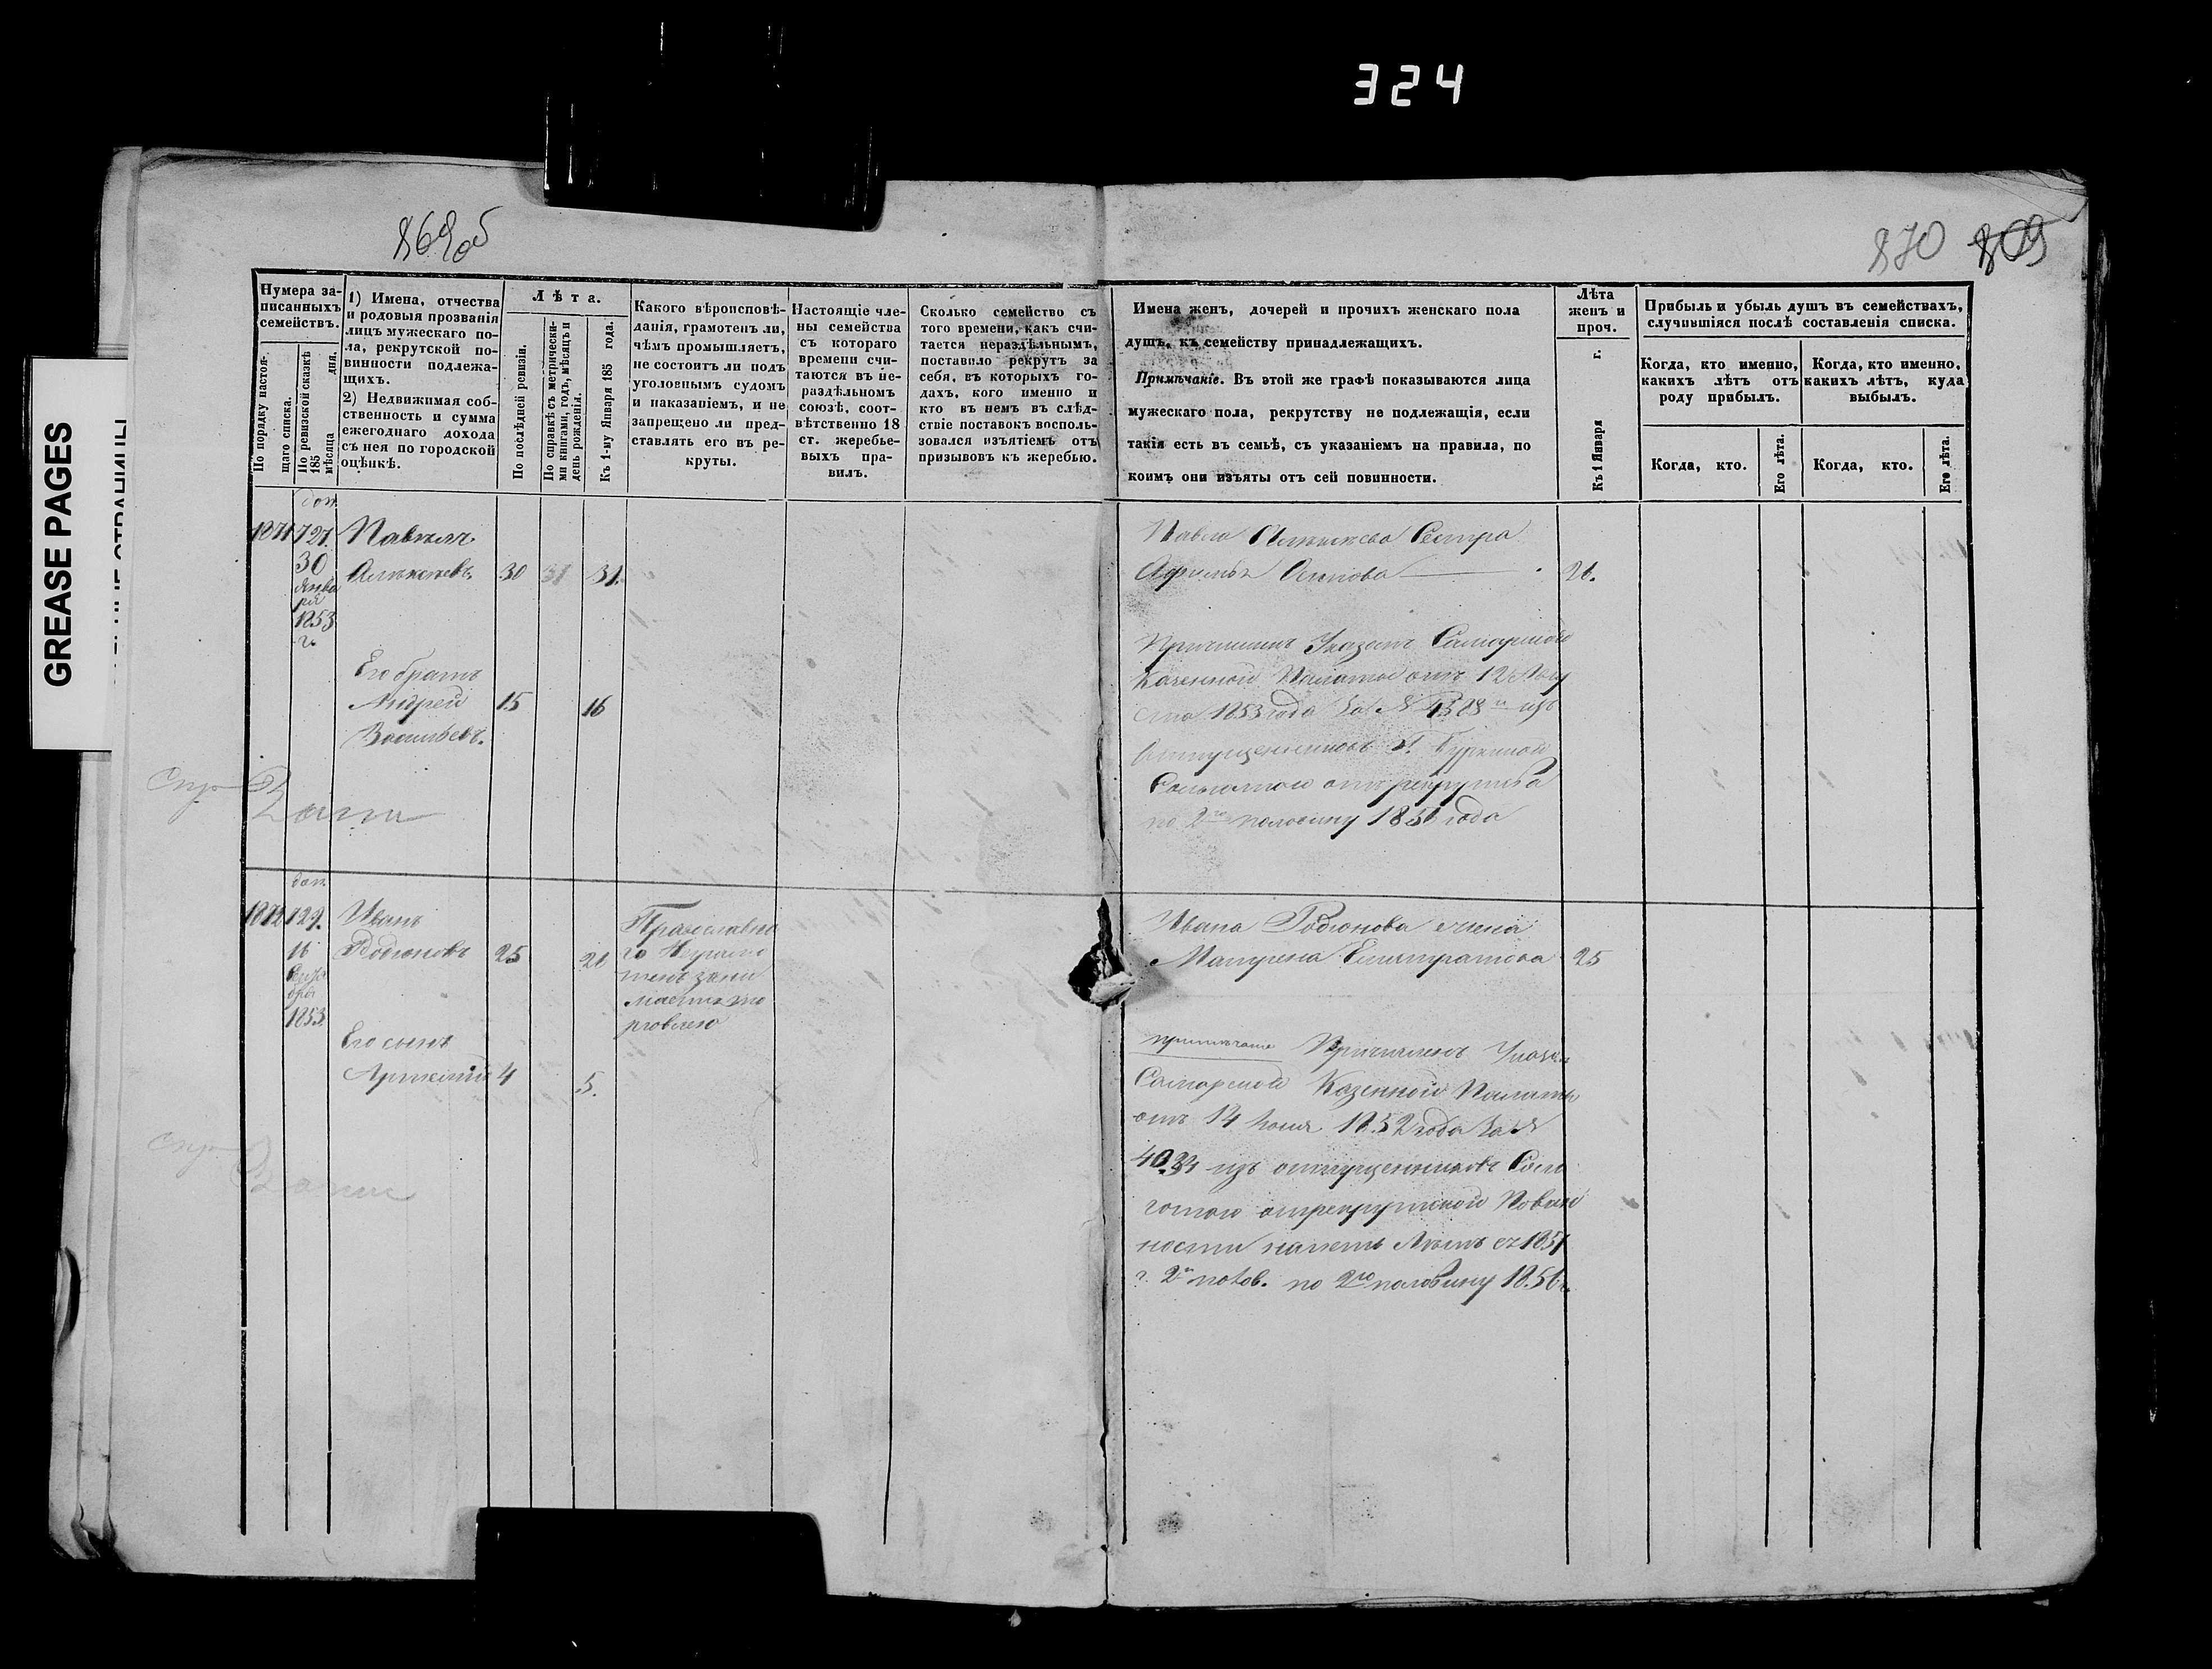 324
869об
870 809
GREASE PAGES
Нумера за-
писанныхъ
семействъ.
По порядку настоя-
щаго списка.
По ревизской сказкѣ
185 дня.
мѣсяца
1) Имена, отчества
и родовыя прозванія
лицъ мужескаго по-
ла, рекрутской по-
винности подлежа-
щихъ.
2) Недвижимая соб-
ственность и сумма
ежегоднаго дохода
съ нея по городской
оцѣнкѣ.
Лѣта.
По послѣдней ревизіи.
По справкѣ съ метрически-
ми книгами, годъ, мѣсяцъ и
день рожденія.
Къ 1-му Января 185 года.
Какого вѣроисповѣ-
данія, грамотенъ ли,
чѣмъ промышляетъ,
не состоитъ ли подъ
уголовнымъ судомъ
и наказаніемъ, и не
запрещено ли пред-
ставлять его въ ре-
круты.
Настоящіе чле-
ны семейства
съ котораго
времени счи-
таются въ не-
раздѣльномъ
союзѣ, соот-
вѣтственно 18
ст. жеребье-
выхъ пра-
вилъ.
Сколько семейство съ
того времени, какъ счи-
тается нераздѣльнымъ,
поставило рекрутъ за
себя, въ которыхъ го-
дахъ, кого именно и
кто въ немъ въ слѣд-
ствіе поставокъ восполь-
зовался изъятіемъ отъ
призывовъ къ жеребью.
Имена женъ, дочерей и прочихъ женскаго пола
душъ, къ семейству принадлежащихъ.
Примѣчаніе. Въ этой же графѣ показываются лица
мужескаго пола, рекрутству не подлежащія, если
такія есть въ семьѣ, съ указаніемъ на правила, по
коимъ они изъяты отъ сей повинности.
Лѣта
женъ и
проч.
Къ 1 Января г.
Прибыль и убыль душъ въ семействахъ,
случившіяся послѣ составленія списка.
Когда, кто именно,
какихъ лѣтъ, отъ
роду прибылъ.
Когда, кто именно,
какихъ лѣтъ, куда
выбылъ.
Когда, кто.
Его лѣта.
Когда, кто.
Его лѣта.
доп
1871 727. Павелъ
30 Алексѣевъ. 30 31 31.
Янва
ря
1853
г.
Его братъ
Андрей 15 16
Васильевъ.
Павла Алексѣева Сестра
Осипова 21.
Причисленъ Указомъ Самарской
Казенной Палаты отъ 12 Авгу
ста 1853 года за № 4588 изъ
отпущенниковъ Г.
отъ рекрутства
по 2ю половину 1856 года
доп
1872 729. Иванъ
16 Родіоновъ 25 26
1853.
Его сынъ
4 5.
Православна
го Неграмо
тенъ зани
мается то
рговлею
Ивана Родіонова жена
Матрена 25
примѣчаніе Причисленъ Указо
Самарской Казенной Палаты
отъ 14 Іюня 1852 года за №
4034 изъ отпущенниковъ Сольготою
отрекрутской Повин
ности напять Лѣтъ съ 1851
г. 2й полов. по 2ю половину 1856 г.